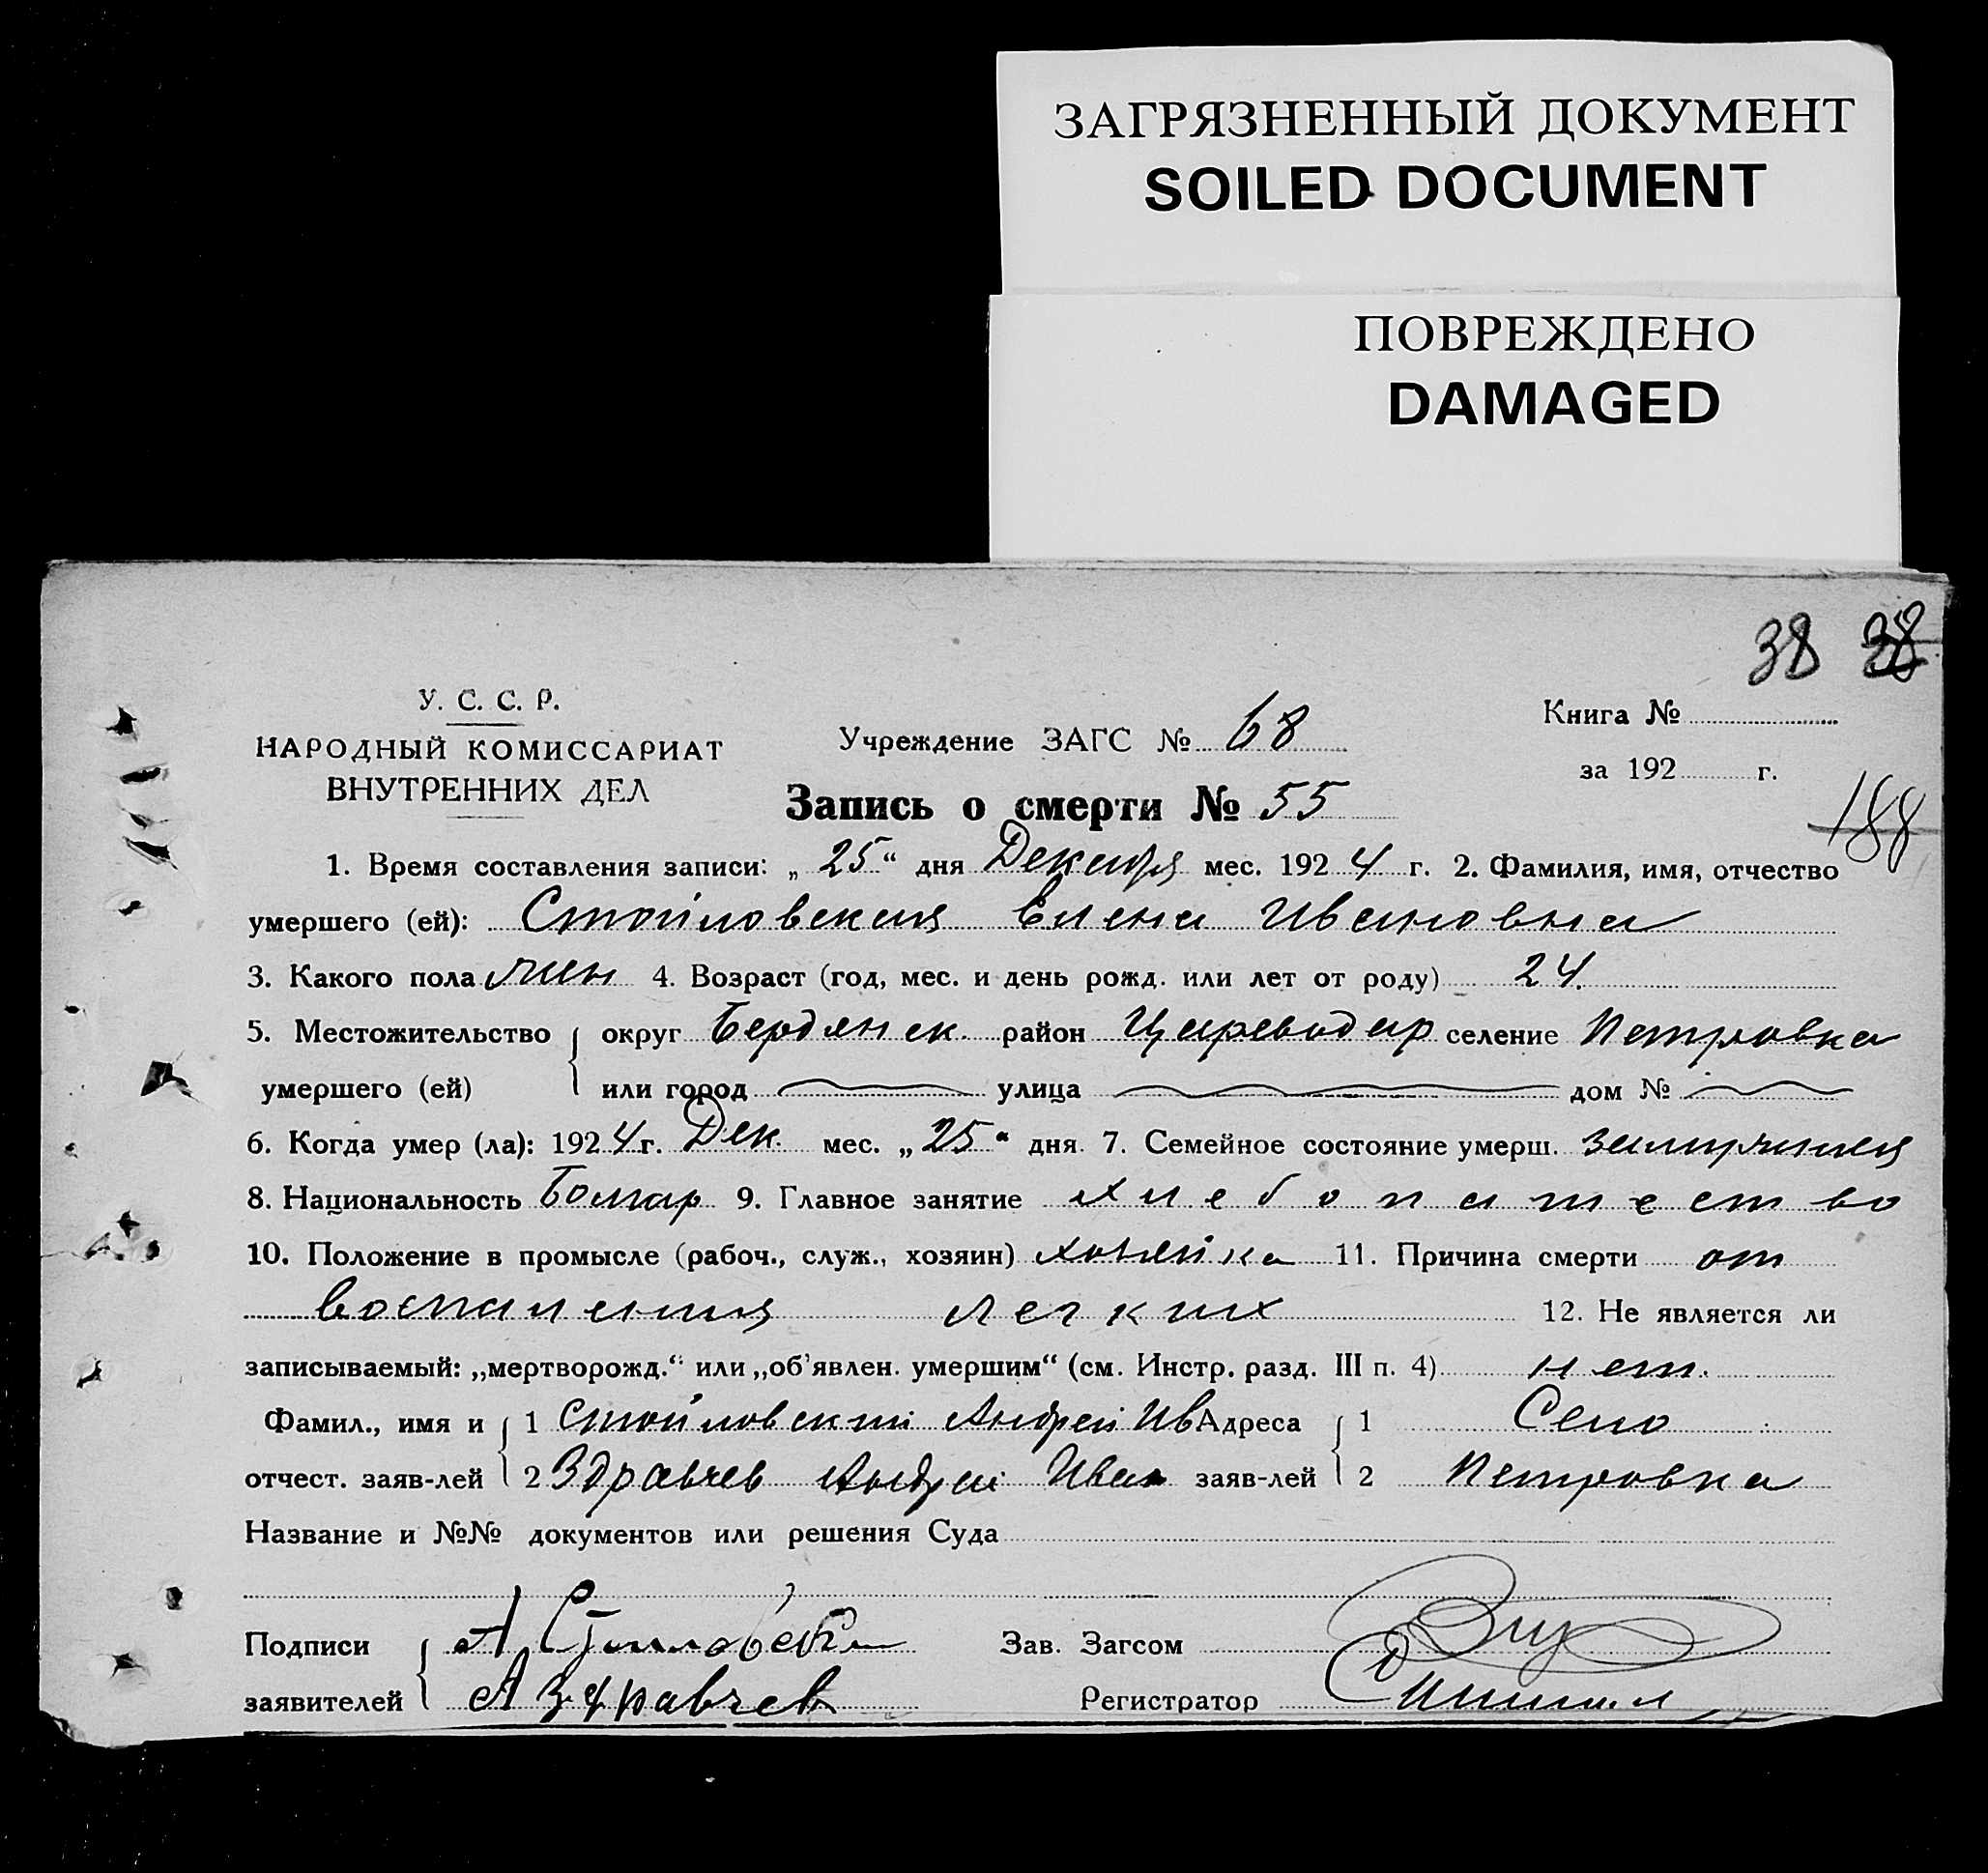 ЗАГРЯЗНЕННЫЙ ДОКУМЕНТ
SOILED DOCUMENT
ПОВРЕЖДЕНО
DAMAGED
38 38
У. С. С. Р.
НАРОДНЫЙ КОМИССАРИАТ
ВНУТРЕННИХ ДЕЛ
Учреждение ЗАГС № 68
Книга №
за 192 г.
188
Запись о смерти № 55
1. Время составления записи: „ 25 “ дня Декабря мес. 192 4 г. 2. Фамилия, имя, отчество
умершего (ей): Стойловская Елена Ивановна
3. Какого пола жен 4. Возраст (год, мес. и день рожд. или лет от роду) 24.
5. Местожительство округ Бердянск. район Цареводар селение Петровка
умершего (ей) или город улица дом №
6. Когда умер (ла): 192 4 г. Дек. мес. „ 25 “ дня. 7. Семейное состояние умерш. замужняя
8. Национальность Болгар 9. Главное занятие хлебопашество
10. Положение в промысле (рабоч., служ., хозяин) хозяйка 11. Причина смерти от
воспаления легких 12. Не является ли
записываемый: „мертворожд.“ или „об'явлен. умершим“ (см. Инстр. разд. III п. 4) нет.
Фамил., имя и 1 Стойловский Андрей Ив Адреса 1 Село
отчест. заяв-лей 2 Здравчев Андрей Иван заяв-лей 2 Петровка
Название и №№ документов или решения Суда
Подписи А Зав. Загсом
заявителей А Здравчев Регистратор